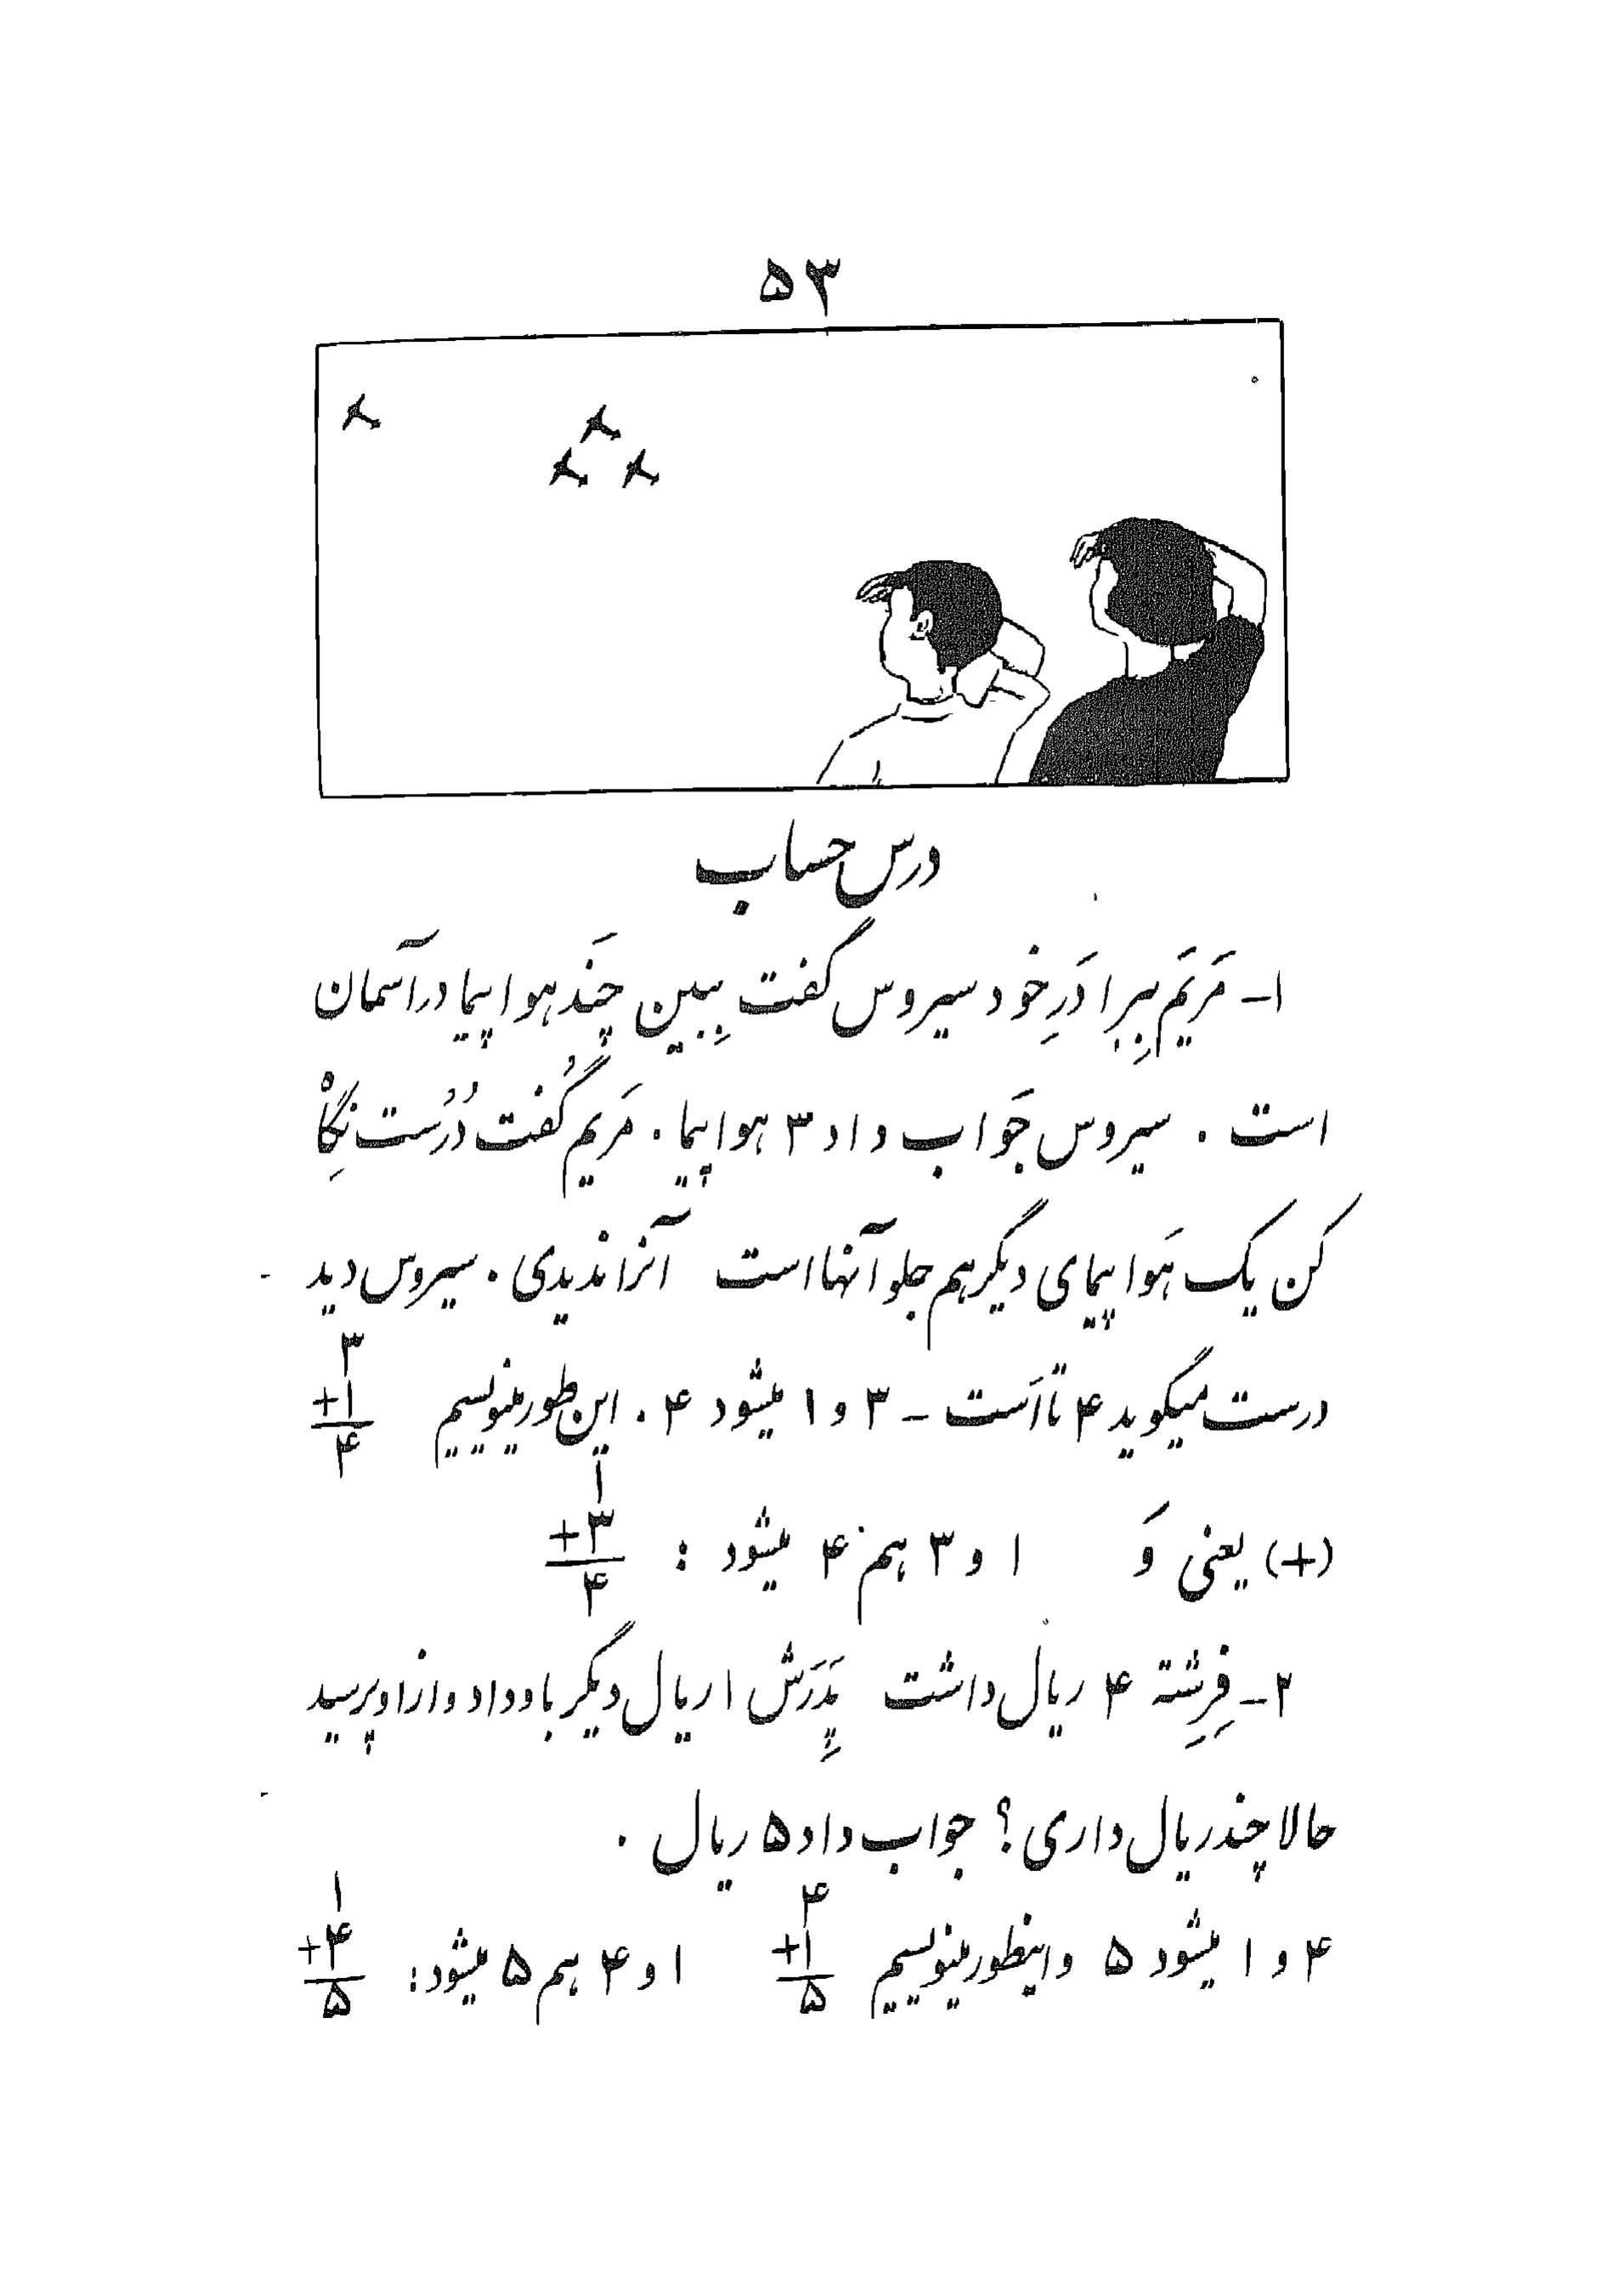 ۵۳
درس حساب
۱- مَریَم بِبِرادَرِ خود سیروس گفت بِبین چَند هواپیما در آسمان
است . سیروس جَواب داد ۳ هواپیما . مَریم گُفت دُرُست نِگاهْ
کن یک هَواپیمای دیگر هم جلو آنها است آنرا ندیدی . سیروس دید
درست میگوید ۴ تا اَست - ۳ و ۱ میشود ۴ . این طور مینویسیم
۳
+۱
۴
(+) یعنی وَ ۱ و ۳ هم ۴ میشود :
۱
+۳
۴
۲- فِرِشته ۴ ریال داشت پِدَرَش ۱ ریال دیگر باو داد و از او پرسید
حالا چند ریال داری ؟ جواب داد ۵ ریال .
۴ و ۱ میشود ۵ و اینطور مینویسیم
۴
+۱
۵
۱ و ۴ هم ۵ میشود :
۱
+۴
۵